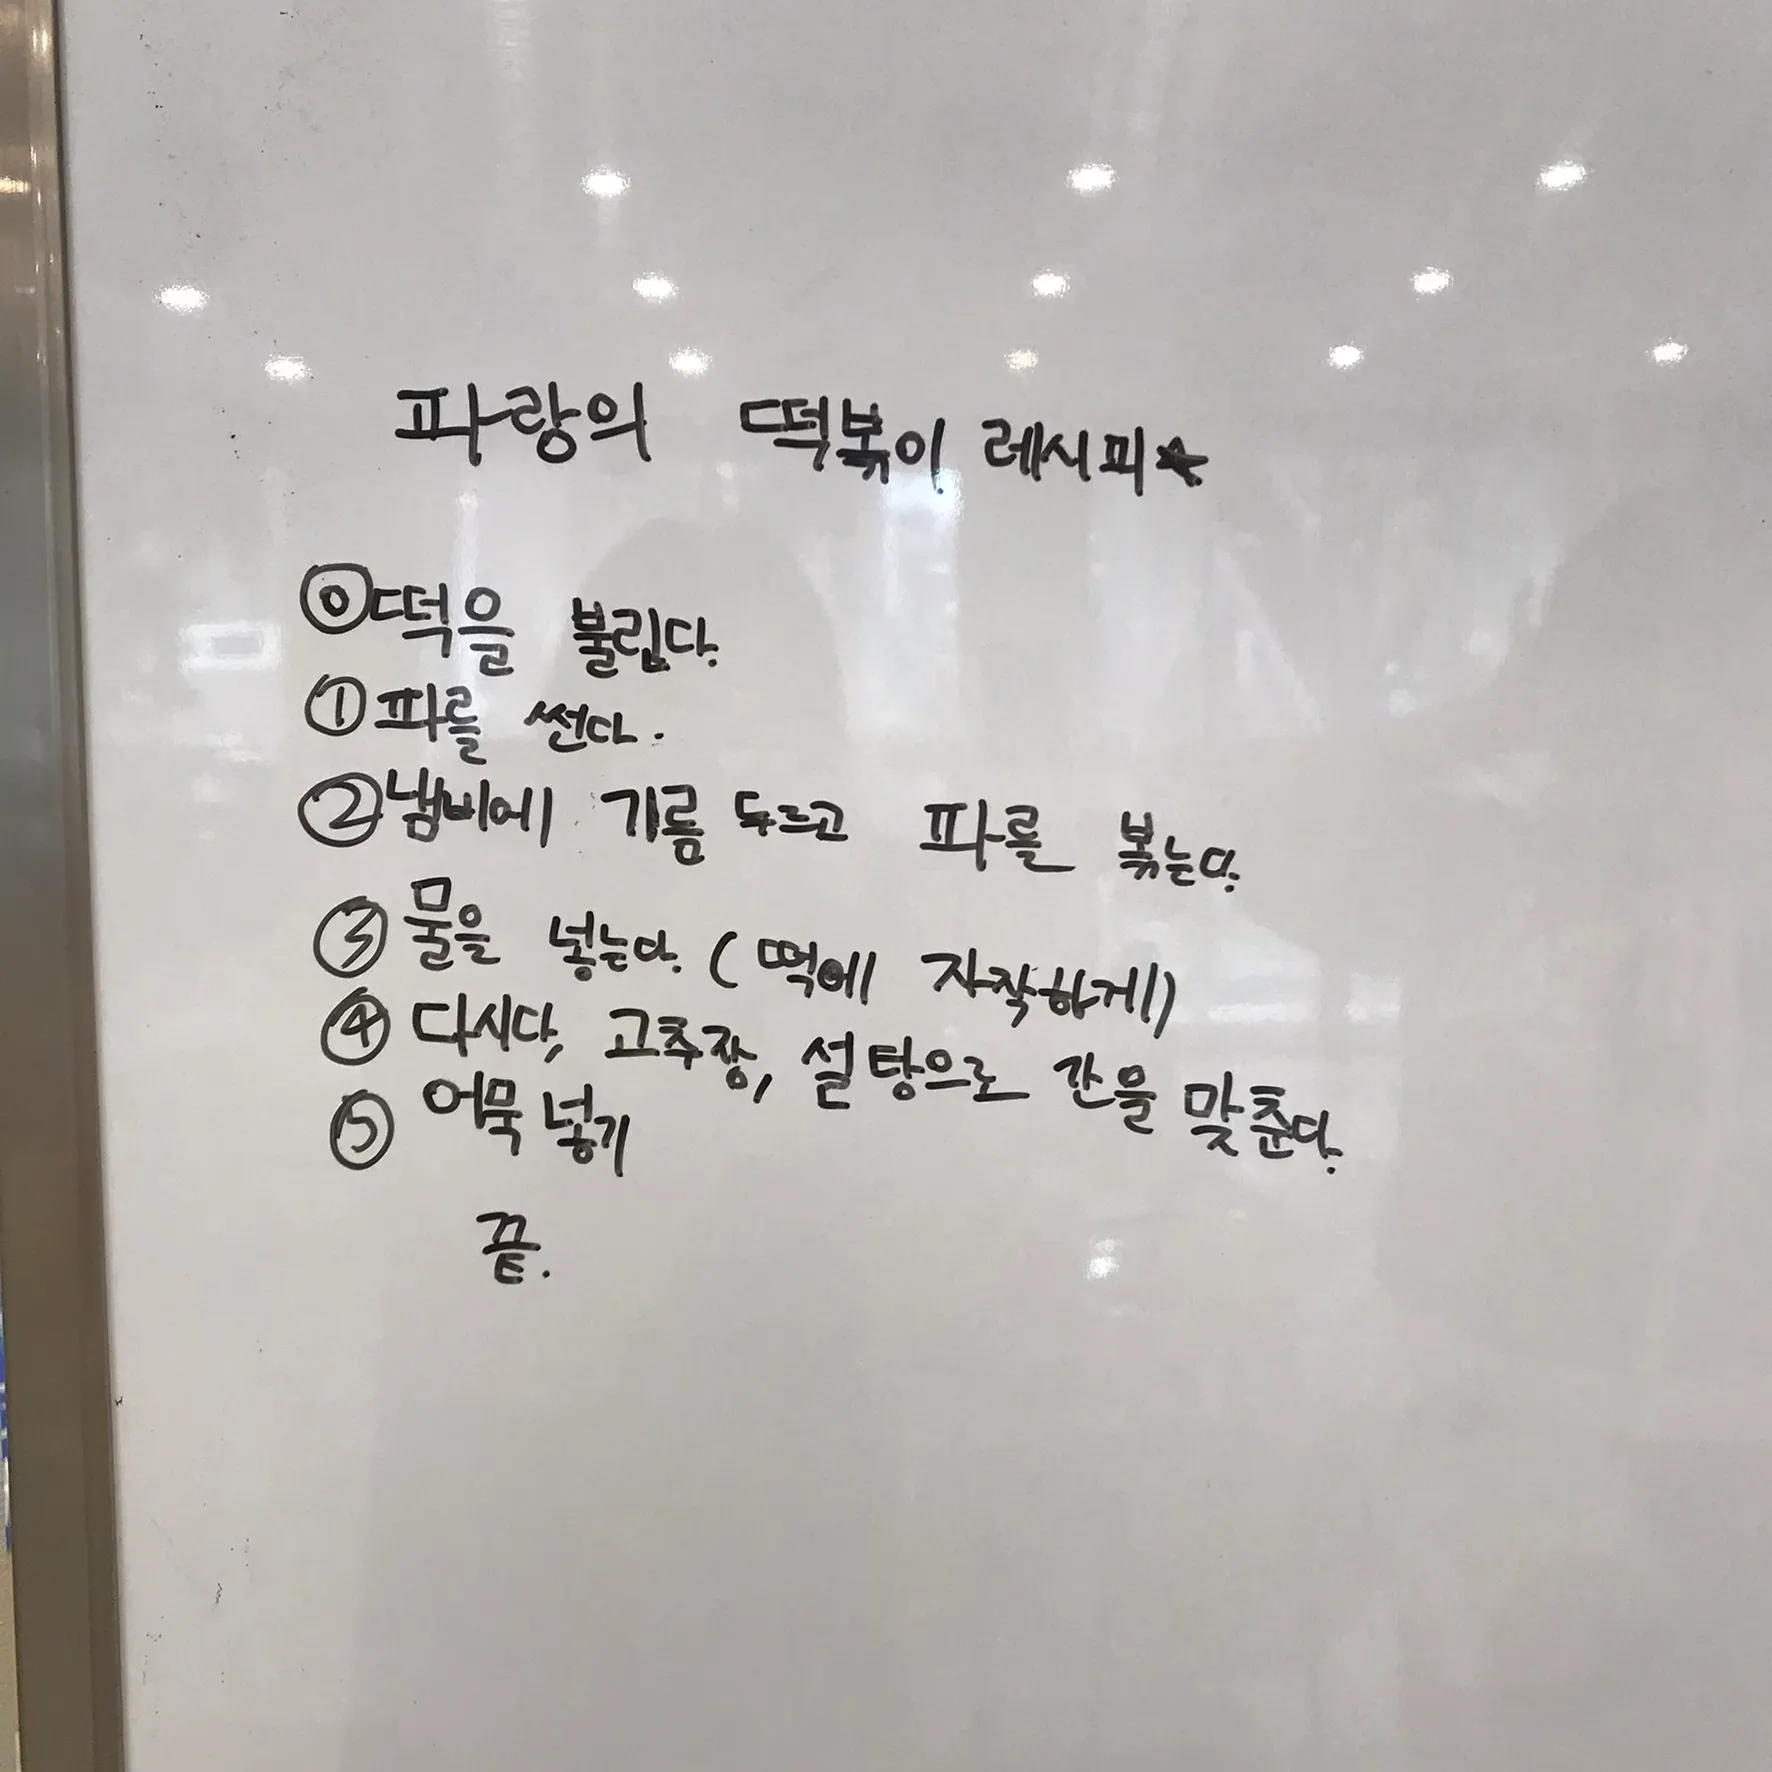 파랑의 떡볶이 레시피★
⓪ 떡을 불립다.
① 파를 썬다.
② 냄비에 기름 두르고 파를 볶는다.
③ 물을 넣는다. (떡에 자작하게)
④ 다시다, 고추장, 설탕으로 간을 맞춘다.
⑤ 어묵 넣기
끝.